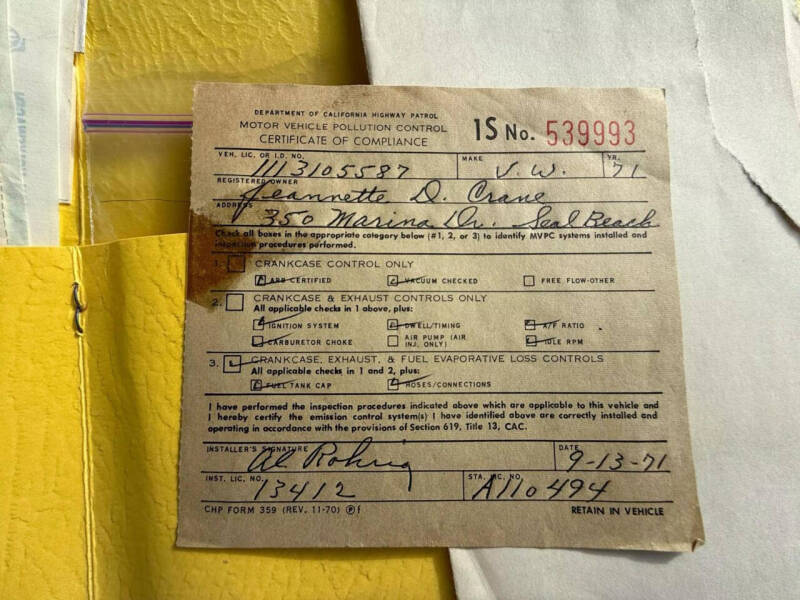 DEPARTMENT OF CALIFORNIA HIGHWAY PATROL
MOTOR VEHICLE POLLUTION CONTROL
CERTIFICATE OF COMPLIANCE
1S No. 539993
VEH. LIC. OR I.D. NO. 1113105587 MAKE V.W. YR. 71
REGISTERED OWNER Jeannette D. Crane
ADDRESS 350 Marina Dr. Seal Beach
Check all boxes in the appropriate category below (#1, 2, or 3) to identify MVPC systems installed and
inspection procedures performed.
1. CRANKCASE CONTROL ONLY
ARB CERTIFIED VACUUM CHECKED FREE FLOW-OTHER
2. CRANKCASE & EXHAUST CONTROLS ONLY
All applicable checks in 1 above, plus:
IGNITION SYSTEM DWELL/TIMING A/F RATIO
CARBURETOR CHOKE AIR PUMP (AIR INJ. ONLY) IDLE RPM
3. CRANKCASE, EXHAUST, & FUEL EVAPORATIVE LOSS CONTROLS
All applicable checks in 1 and 2, plus:
FUEL TANK CAP HOSES/CONNECTIONS
I have performed the inspection procedures indicated above which are applicable to this vehicle and
I hereby certify the emission control system(s) I have identified above are correctly installed and
operating in accordance with the provisions of Section 619, Title 13, CAC.
INSTALLER'S SIGNATURE Al Rohrig DATE 9-13-71
INST. LIC. NO. 13412 STA. LIC. NO. A110494
CHP FORM 359 (REV. 11-70) RETAIN IN VEHICLE